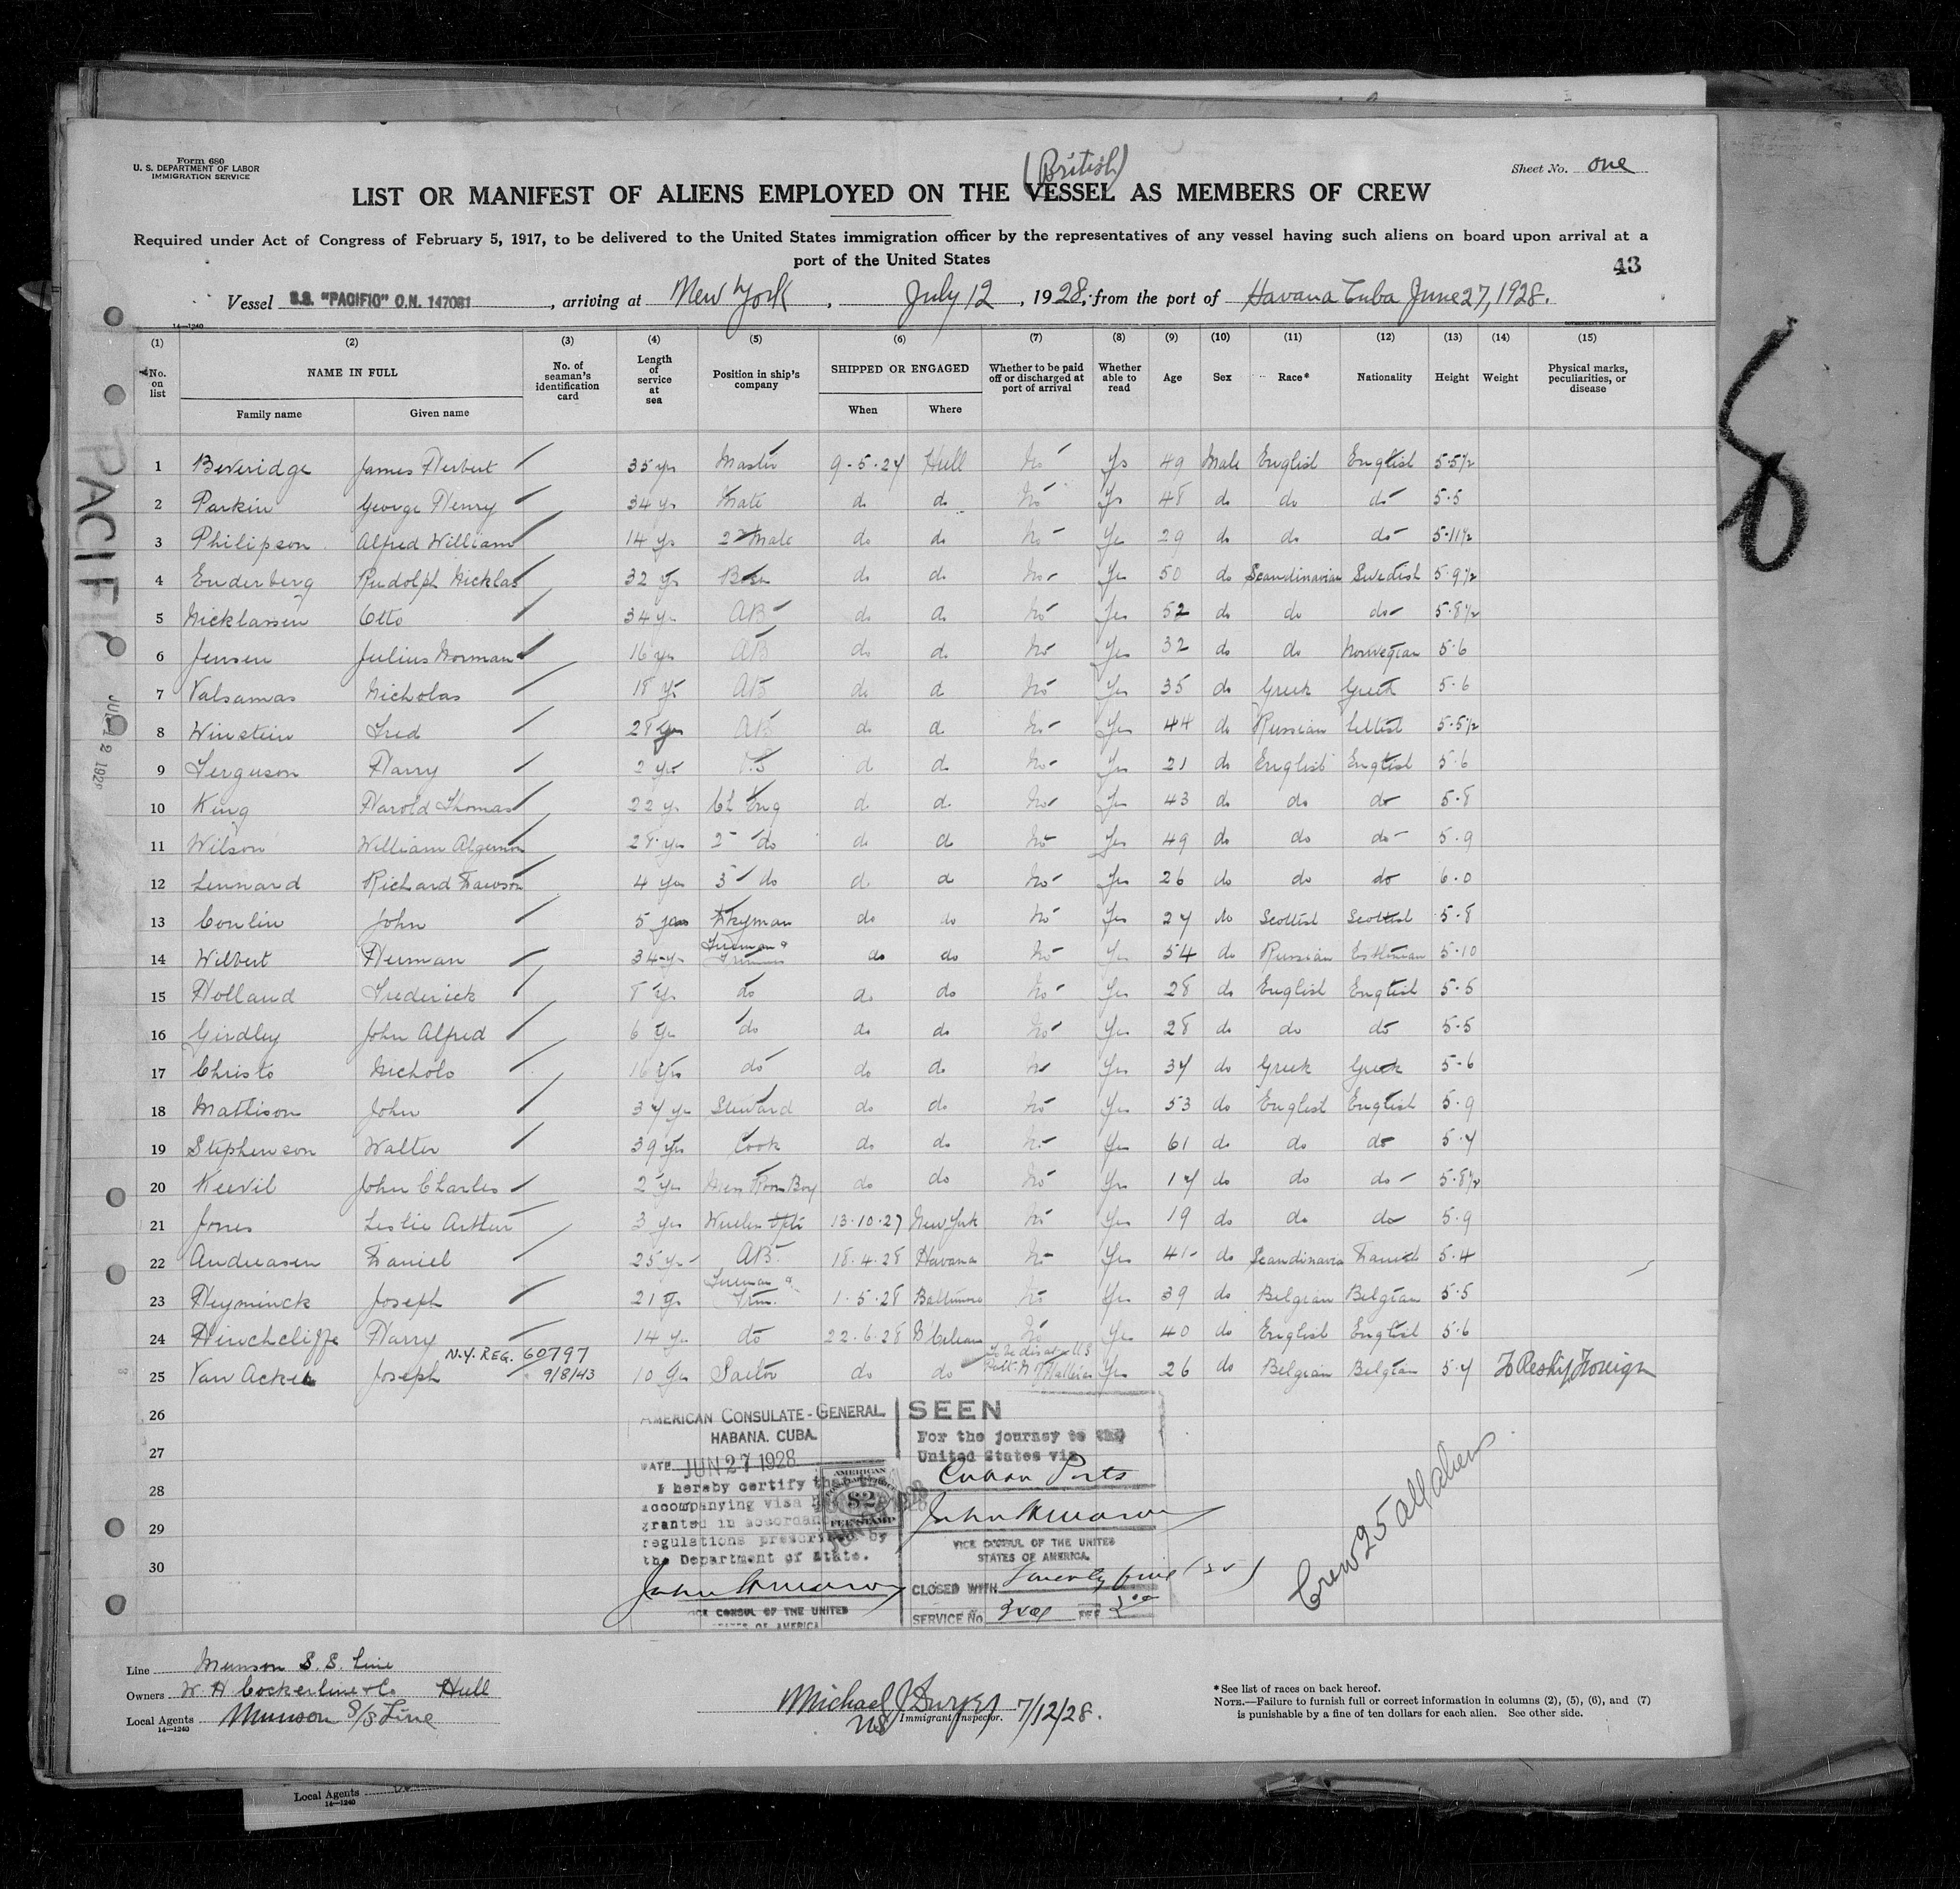 Form 680
U. S. DEPARTMENT OF LABOR
IMMIGRATION SERVICE
(British)
Sheet No. one
LIST OR MANIFEST OF ALIENS EMPLOYED ON THE VESSEL AS MEMBERS OF CREW
Required under Act of Congress of February 5, 1917, to be delivered to the United States immigration officer by the representatives of any vessel having such aliens on board upon arrival at a
port of the United States
43
Vessel S.S. "PACIFIC" O.N. 147081, arriving at New York, July 12, 1928, from the port of Havana Cuba June 27, 1928.
14—1240
(1) (2) (3) (4) (5) (6) (7) (8) (9) (10) (11) (12) (13) (14) (15)
No. on list NAME IN FULL Family name Given name No. of seaman's identification card Length of service at sea Position in ship's company SHIPPED OR ENGAGED When Where Whether to be paid off or discharged at port of arrival Whether able to read Age Sex Race* Nationality Height Weight Physical marks, peculiarities, or disease
1 Beveridge James Herbert 35 yrs Master 9-5-27 Hull No Ys 49 Male English English 5-5½
2 Parkin George Henry 34 yrs Mate do do No Ys 48 do do do 5-5
3 Philipson Alfred William 14 yrs 2nd Mate do do No Yes 29 do do do 5-11½
4 Enderberg Rudolph Nicklas 32 yrs Bosn do do No Yes 50 do Scandinavian Swedish 5-9½
5 Nicklassen Otto 34 yrs AB do d No Yes 52 do do do 5-8½
6 Jensen Julius Norman 16 yrs AB do d No Yes 32 do do Norwegian 5-6
7 Valsamas Nicholas 18 yrs AB do d No Yes 35 do Greek Greek 5-6
8 Winstein Fred 28 yrs AB do d No Yes 44 do Russian 5-5½
9 Ferguson Harry 2 yrs d d No Yes 21 do English English 5-6
10 King Harold Thomas 22 yrs Ch Eng d d No Yes 43 do do do 5-8
11 Wilson William Algernon 28 yrs 2 do do d No Yes 49 do do do 5-9
12 Lennard Richard Dawson 4 yrs 3 do d d No Yes 26 do do do 6-0
13 Conlin John 5 years Dkyman do do No Yes 27 do Scottish Scottish 5-8
14 Wilbert Herman 34 yrs Fireman & Trimmer do do No Yes 54 do Russian Esthonian 5-10
15 Holland Frederick 8 yrs do do do No Yes 28 do English English 5-5
16 Girdley John Alfred 6 yrs do do do No Yes 28 do do do 5-5
17 Christo Nichols 16 yrs do do do No Yes 37 do Greek Greek 5-6
18 Mattison John 37 yrs Steward do do No Yes 53 do English English 5-9
19 Stephenson Walter 39 yrs Cook do do No Yes 61 do do do 5-7
20 Keevil John Charles 2 yrs Mess Room Boy do do No Yes 17 do do do 5-8½
21 Jones Leslie Arthur 3 yrs Wireless Optr 13-10-27 New York No Yes 19 do do do 5-9
22 Andreasen Daniel 25 yrs AB 18-4-28 Havana No Yes 41 do Scandinavia Danish 5-4
23 Heyminck Joseph 21 yrs Fireman & Trim. 1-5-28 Baltimore No Yes 39 do Belgian Belgian 5-5
24 Hinchcliffe Harry 14 yrs do 22-6-28 N'Orleans No Yes 40 do English English 5-6
N.Y. REG. 60797
25 Van Acker Joseph 9/8/43 10 yrs Sailor do do Yes 26 do Belgian Belgian 5-7 To Reship Foreign
26
27
28
29
30
PACIFIC
JUL 12 1928
AMERICAN CONSULATE-GENERAL
HABANA, CUBA.
DATE JUN 27 1928
I hereby certify that the
accompanying visa
granted in accordance
regulations prescribed by
the Department of State.
VICE CONSUL OF THE UNITED
STATES OF AMERICA
AMERICAN
$2
FEE STAMP
SEEN
For the journey to the
United States via
Cuban Ports
VICE CONSUL OF THE UNITED
STATES OF AMERICA.
CLOSED WITH Twenty five (25)
SERVICE No. FEE 2.00
Crew 25 all aliens
Line Munson S.S. Line
Owners W H Cockerline & Co Hull
Local Agents Munson S/S Line
14—1240
Michael J. 7/12/28.
Immigrant Inspector.
*See list of races on back hereof.
NOTE.—Failure to furnish full or correct information in columns (2), (5), (6), and (7)
is punishable by a fine of ten dollars for each alien. See other side.
Local Agents
14—1240